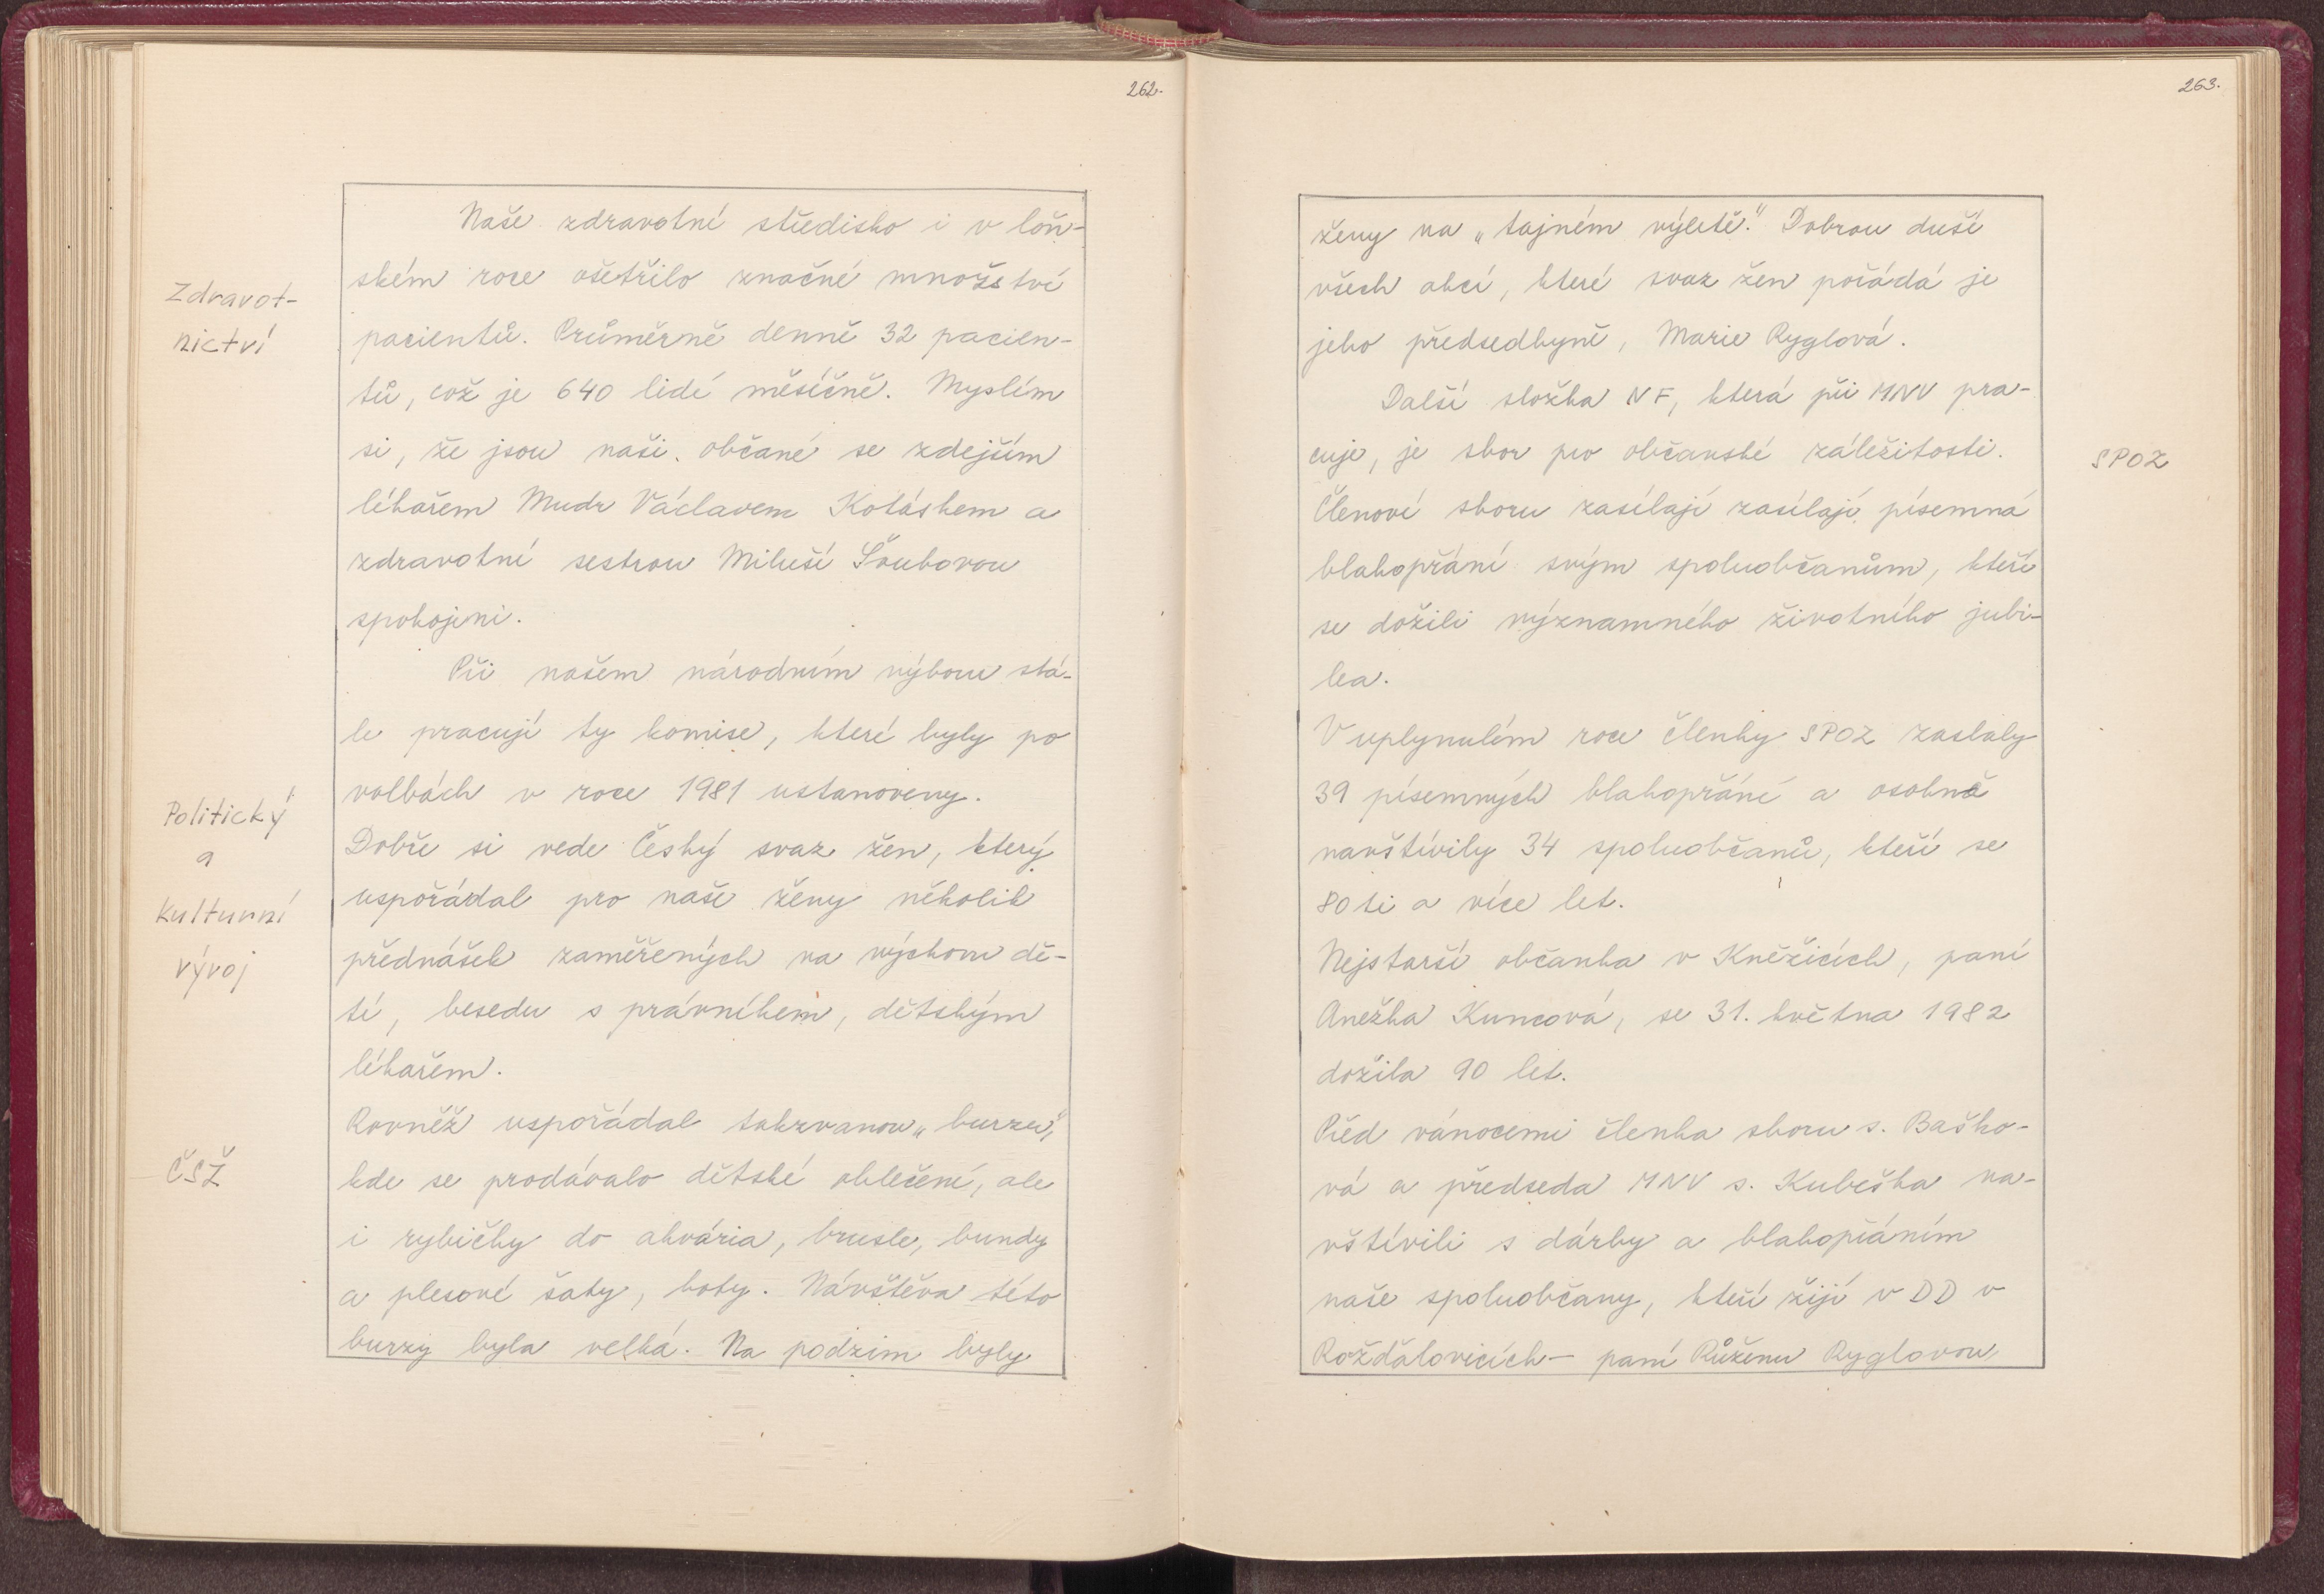 262.
Naše zdravotní středisko i v loň-
ském roce ošetřilo značné množství
Zdravot-
nictví
pacientů. Průměrně denně 32 pacien-
tů, což je 640 lidí měsíčně. Myslím
si, že jsou naši občané se zdejším
lékařem Mudr Václavem Kotáskem a
zdravotní sestrou Miluší Šoubovou
spokojeni.
Při našem národním výboru stá-
le pracují ty komise, které byly po
volbách v roce 1981 ustanoveny.
Politický
a
Kulturní
vývoj
Dobře si vede Český svaz žen, který
uspořádal pro naše ženy několik
přednášek zaměřených na výchovu dě-
tí, besedu s právníkem, dětským
lékařem.
Rovněž uspořádal takzvanou „burzu",
ČSŽ
kde se prodávalo dětské oblečení, ale
i rybičky do akvária, brusle, bundy
a plesové šaty, boty. Návštěva této
burzy byla velká. Na podzim byly
263.
ženy na „tajném výletě." Dobrou duší
všech akcí, které svaz žen pořádá je
jeho předsedkyně, Marie Ryglová.
Další složka NF, která při MNV pra-
cuje, je sbor pro občanské záležitosti.
SPOZ
Členové sboru zasílají zasílají písemná
blahopřání svým spoluobčanům, kteří
se dožili významného životního jubi-
lea.
V uplynulém roce členky SPOZ zaslaly
39 písemných blahopřání a osobně
navštívily 34 spoluobčanů, kteří se
80 ti a více let.
Nejstarší občanka v Kněžicích, paní
Anežka Kuncová, se 31. května 1982
dožila 90 let.
Před vánocemi členka sboru s. Baško-
vá a předseda MNV s. Kubeška na-
vštívili s dárky a blahopřáním
naše spoluobčany, kteří žijí v DD v
Rožďalovicích - paní Růženu Ryglovou,